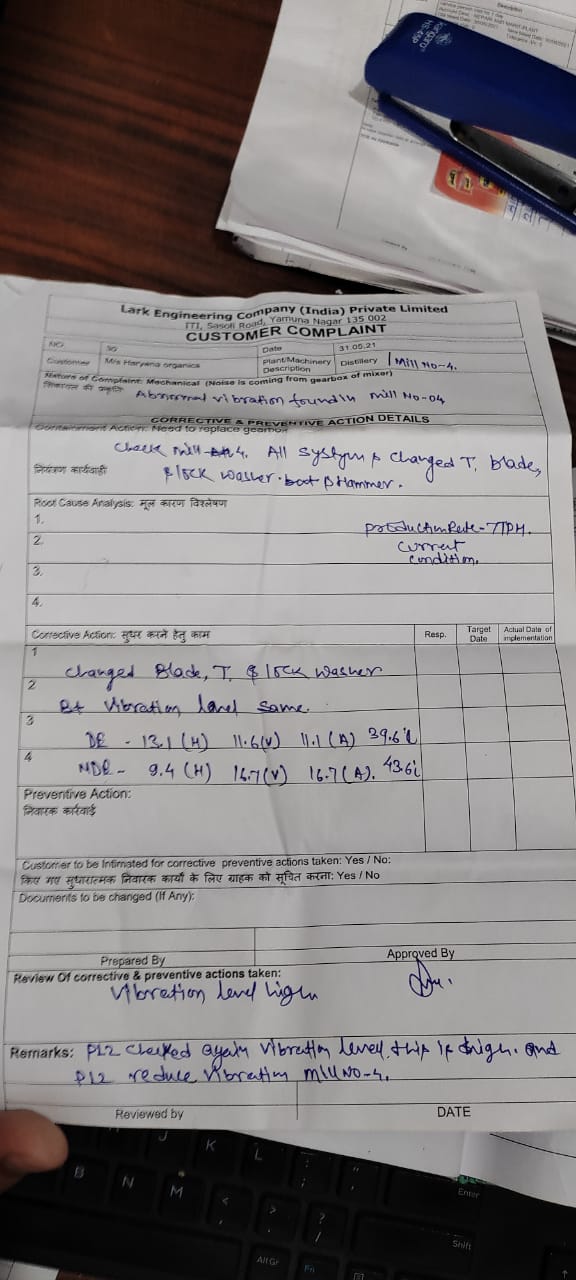 Lark Engineering Company (India) Private Limited
ITI, Sasoli Road, Yamuna Nagar 135 002
CUSTOMER COMPLAINT
NO. Date 31.05.21
Customer M/s Haryana organics Plant/Machinery Description Distillery / Mill No-4.
Nature of Complaint: Mechanical (Noise is coming from gearbox of mixer)
शिकायत की प्रकृति Abnormal vibration found in mill No-04
CORRECTIVE & PREVENTIVE ACTION DETAILS
Containment Action: Need to replace gearbox
Check mill 4. All System & Changed T, blade,
नियंत्रण कार्यवाही & lock washer. & Hammer.
Root Cause Analysis: मूल कारण विश्लेषण
1. Production Rate - 7TPH.
2. Current
condition.
3.
4.
Corrective Action: सुधार करने हेतु काम Resp. Target Date Actual Date of implementation
1
Changed Blade, T, & lock washer
2
Bt vibration level same.
3
DE - 13.1 (H) 11.6(V) 11.1 (A) 39.6
4
NDE - 9.4 (H) 16.7(V) 16.7(A). 43.6
Preventive Action:
निवारक कार्रवाई
Customer to be Intimated for corrective preventive actions taken: Yes / No:
किए गए सुधारात्मक निवारक कार्यों के लिए ग्राहक को सूचित करना: Yes / No
Documents to be changed (If Any):
Prepared By Approved By
Review Of corrective & preventive actions taken:
Vibration level high
Remarks: Plz checked again vibration level. this is high. and
Plz reduce vibration mill NO-4.
Reviewed by DATE